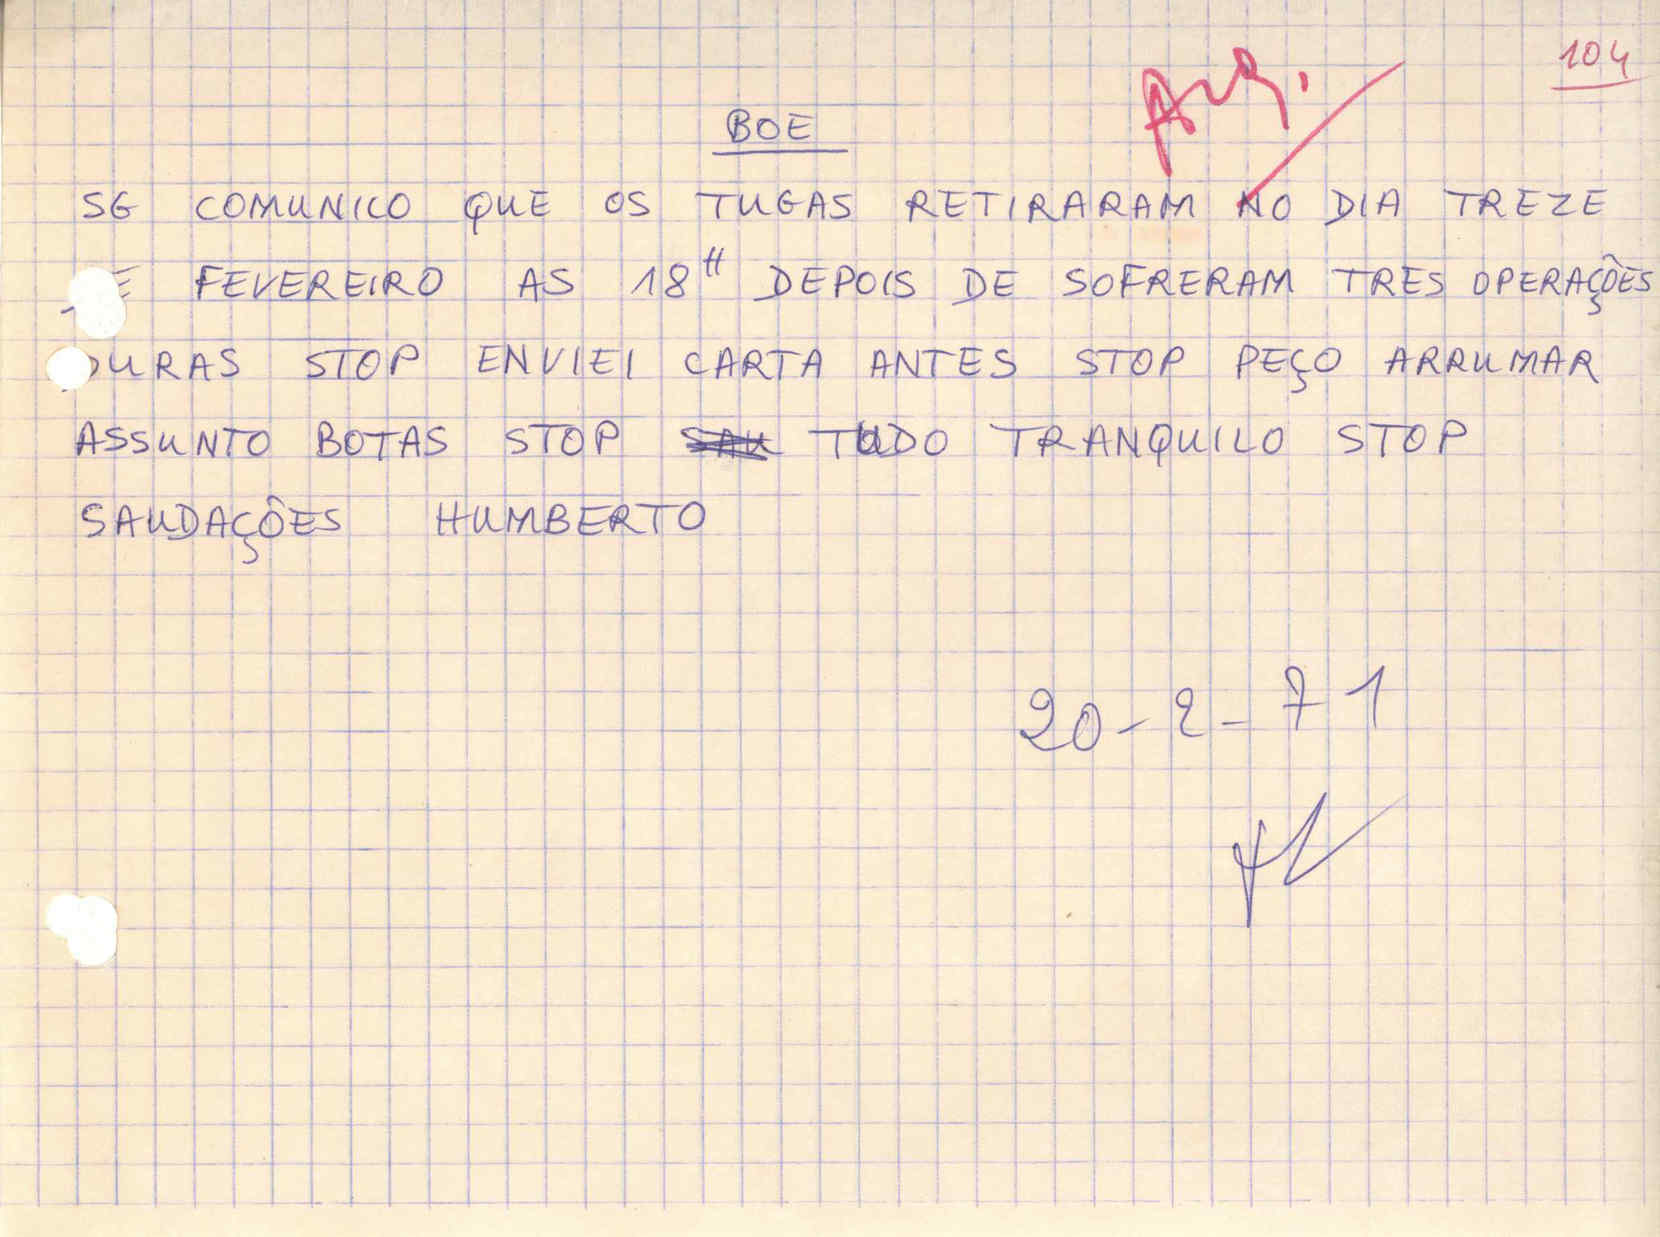 104
Arq.
BOE
SG COMUNICO QUE OS TUGAS RETIRARAM NO DIA TREZE
DE FEVEREIRO AS 18H DEPOIS DE SOFRERAM TRES OPERAÇÕES
DURAS STOP ENVIEI CARTA ANTES STOP PEÇO ARRUMAR
ASSUNTO BOTAS STOP TUDO TRANQUILO STOP
SAUDAÇÕES HUMBERTO
20-2-71